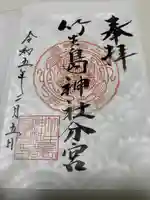 奉拝
竹生島神社分宮
令和五年二月五日